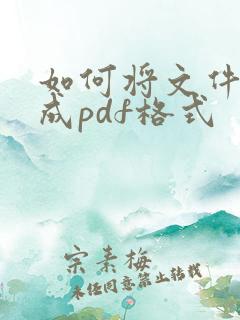 如何将文件
成pdf格式
宗素梅
未经同意禁止转载